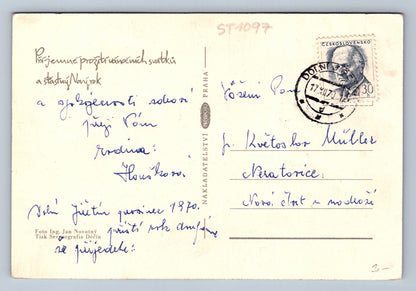 ST1097
Příjemné prožití vánočních svátků
a šťastný Nový rok
a spokojenosti zdraví
přejí Vám
rodina:
Houškovi
Dolní
prosinec 1970.
příští rok
se přijedete:
Foto Ing. Jan Novotný
Tisk Severografia Děčín
NAKLADATELSTVÍ
PRAHA
ČESKOSLOVENSKO
30
DOLNÍ
17.XII.70
Vážení Paní
p. Květoslav Müller
Neratovice
Nová část u nádraží
2,-